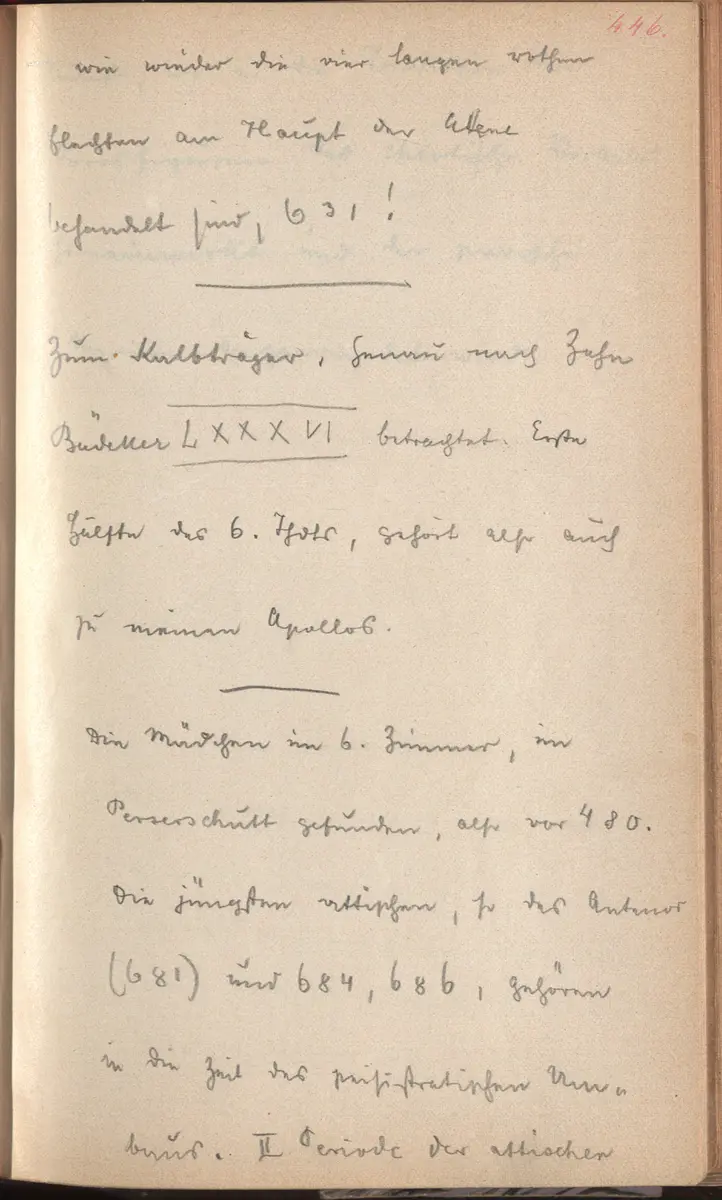 446.
wie wieder die vier langen rothen
Flechten am Haupt der Atene
behandelt sind, 631!
Zum Kalbträger, genau nach Zehn
Bädeker LXXXVI betrachtet. Erste
Hälfte des 6. Jhdts, gehört also auch
zu meinen Apollos.
Die Mädchen im 6. Zimmer, im
Perserschutt gefunden, also vor 480.
Die jüngsten attischen, so des Antenor
(681) und 684, 686, gehören
in die Zeit des peisistratischen Um-
baus. II Periode der attischen